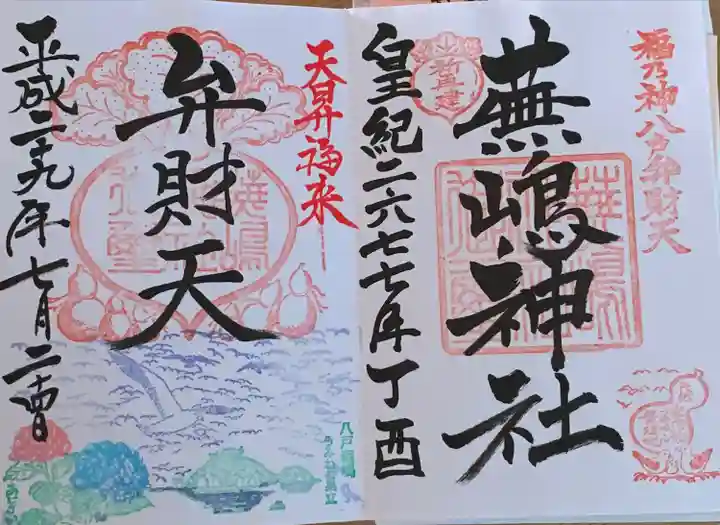 福乃神八戸弁財天
蕪嶋神社
皇紀二六七七年丁酉
天昇福来
弁財天
平成二十九年七月二十四日
八戸